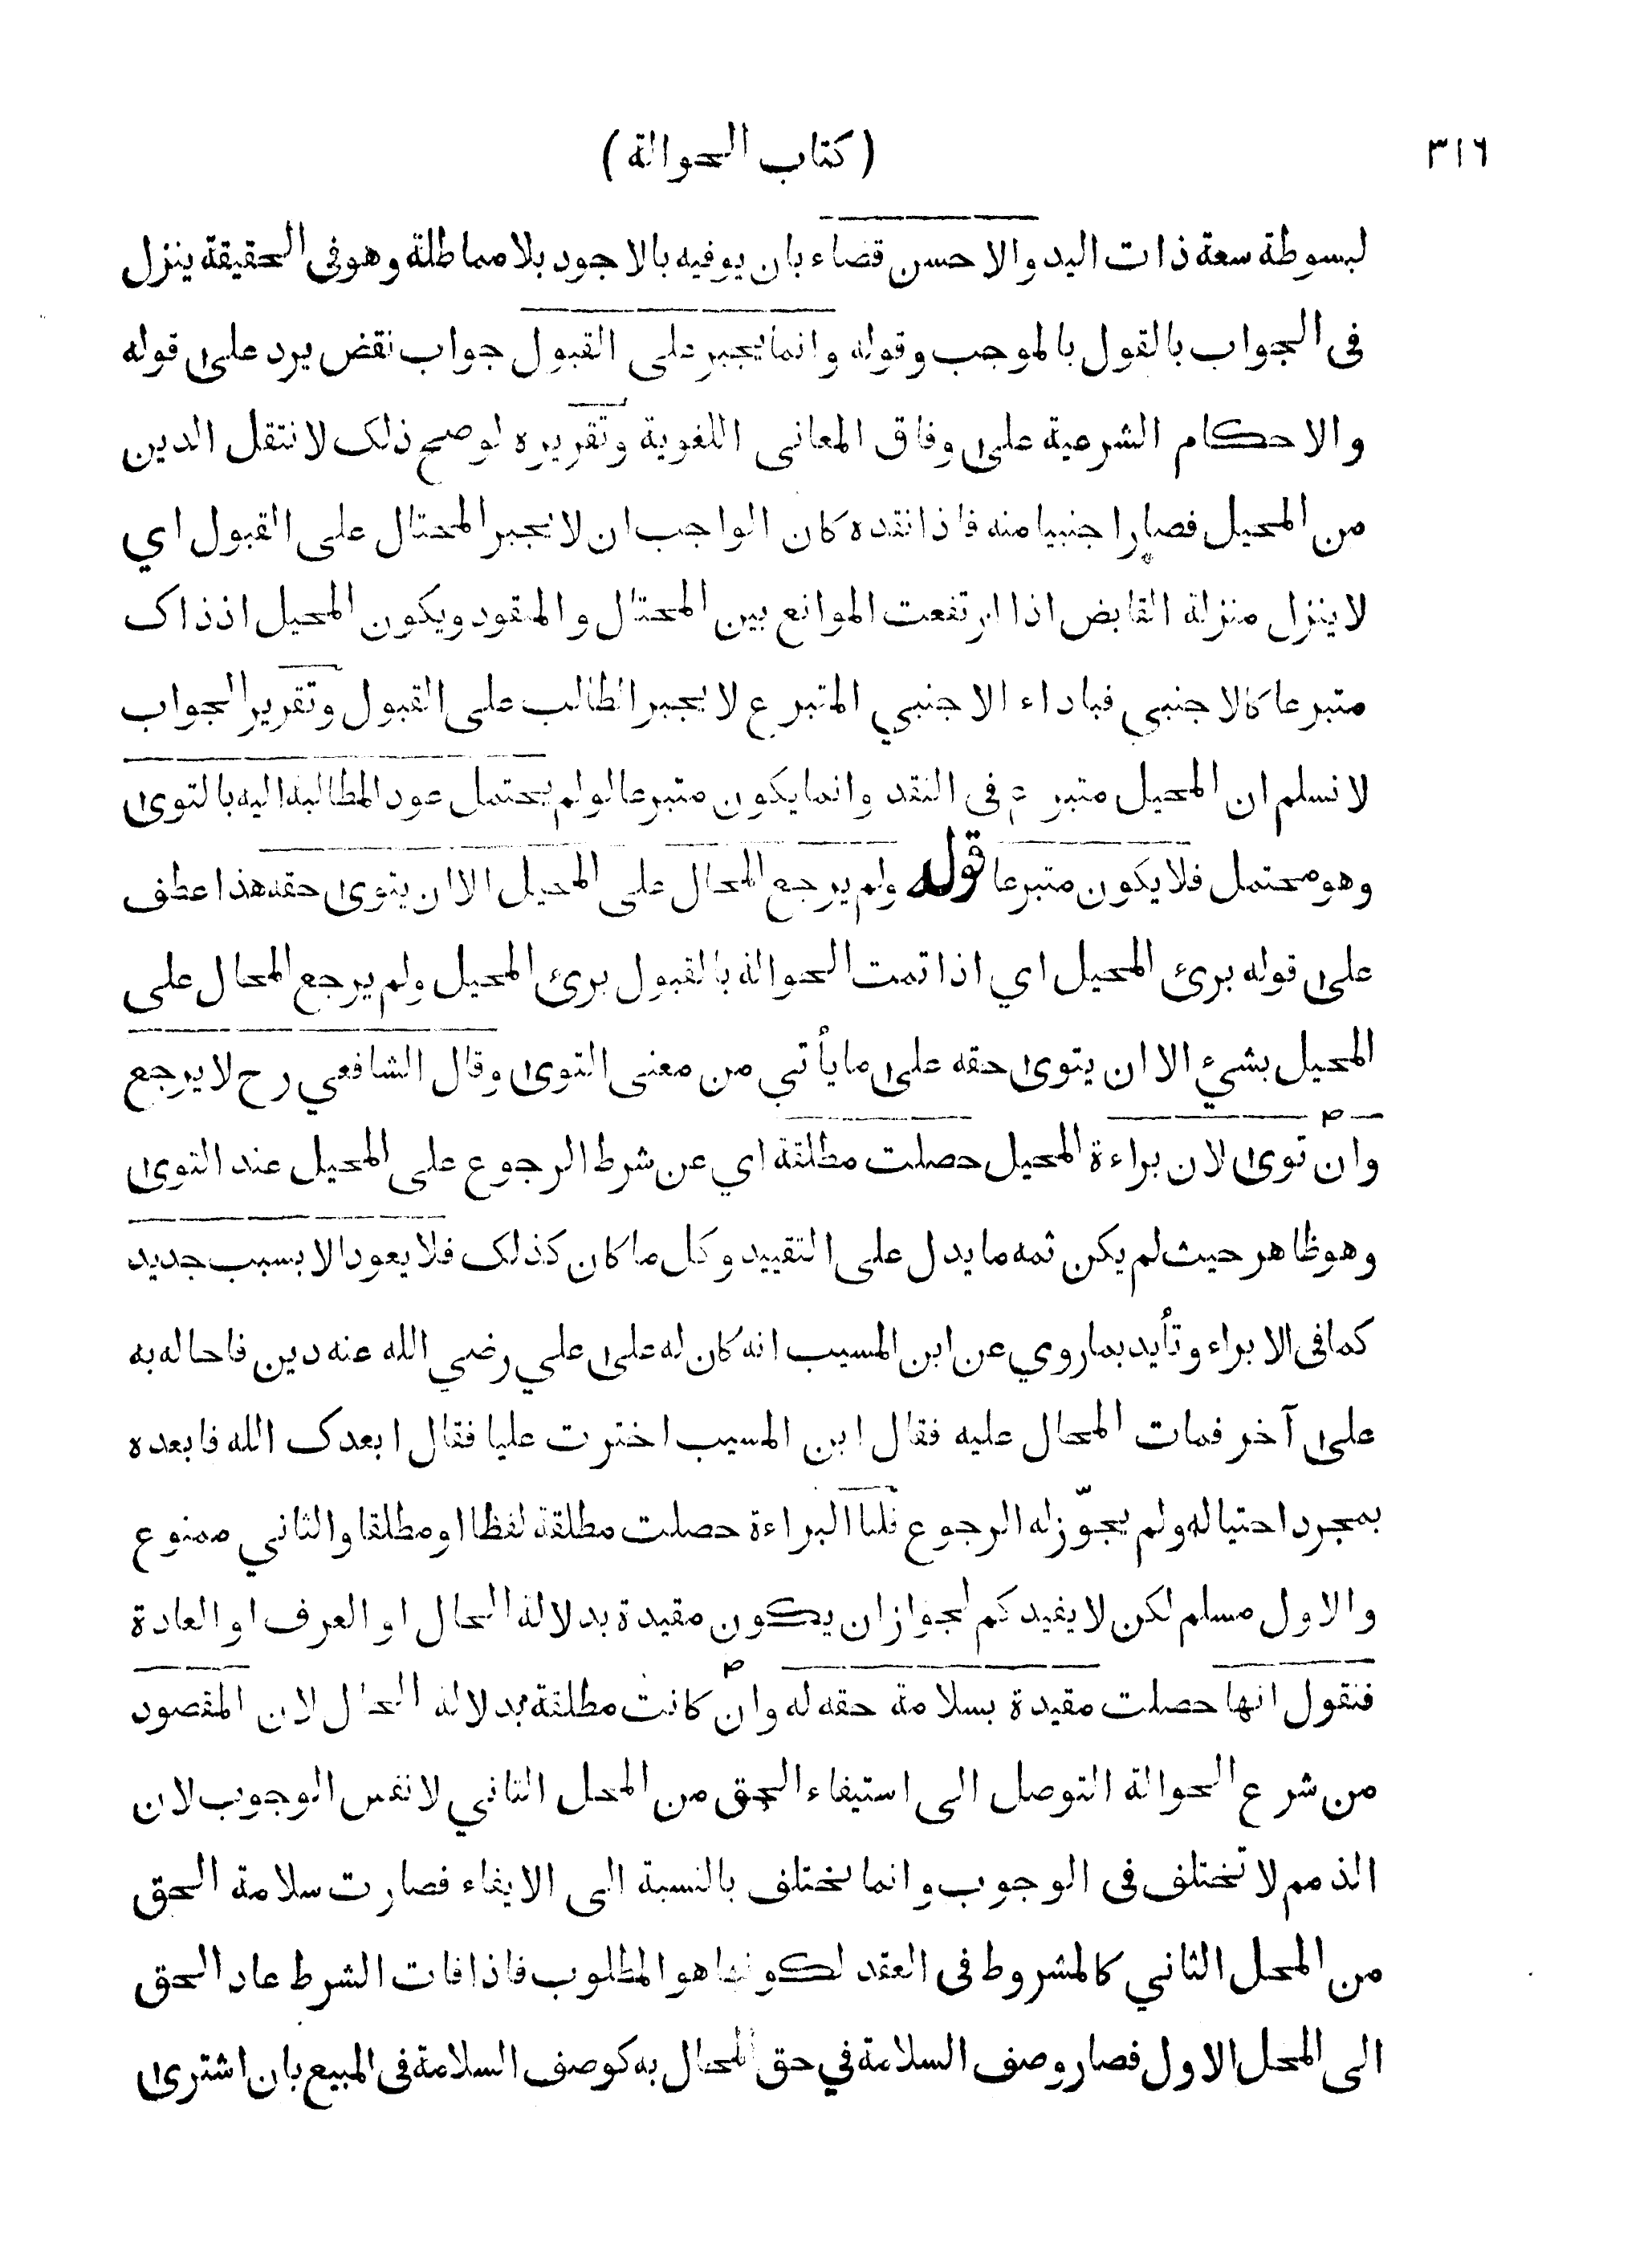 ٣١٦
( كتاب الحوالة )
لبسوطة سعة ذات اليد والاحسن قضاء بان يوفيه بالاجود بلا مماطلة وهو فى الحقيقة ينزل
فى الجواب بالقول بالموجب وقوله وانما يجبر على القبول جواب نقض يرد على قوله
والاحكام الشرعية على وفاق المعانى اللغوية وتقريره لوصح ذلك لانتقل الدين
من المحيل فصار اجنبيا منه فاذا نقده كان الواجب ان لا يجبر المحتال على القبول اي
لا ينزل منزلة القابض اذا ارتفعت الموانع بين المحتال والمنقود ويكون المحيل اذ ذاك
متبرعا كالاجنبي فباداء الاجنبي المتبرع لا يجبر الطالب على القبول وتقرير الجواب
لا نسلم ان المحيل متبرع فى النقد وانما يكون متبرعا لو لم يحتمل عود المطالبة اليه بالتوى
وهو محتمل فلا يكون متبرعا قوله ولم يرجع المحال على المحيل الا ان يتوى حقه هذا عطف
على قوله برئ المحيل اي اذا تمت الحوالة بالقبول برئ المحيل ولم يرجع المحال على
المحيل بشيء الا ان يتوى حقه على ما يأتي من معنى التوى وقال الشافعي رح لا يرجع
وان توى لان براءة المحيل حصلت مطلقة اي عن شرط الرجوع على المحيل عند التوى
وهو ظاهر حيث لم يكن ثمه ما يدل على التقييد وكل ما كان كذلك فلا يعود الا بسبب جديد
كما فى الابراء وتأيد بما روي عن ابن المسيب انه كان له على علي رضي الله عنه دين فاحاله به
على آخر فمات المحال عليه فقال ابن المسيب اخترت عليا فقال ابعدك الله فابعده
بمجرد احتياله ولم يجوّز له الرجوع قلنا البراءة حصلت مطلقة لفظا او مطلقا والثاني ممنوع
والاول مسلم لكن لا يفيدكم لجواز ان يكون مقيدة بدلالة الحال او العرف او العادة
فنقول انها حصلت مقيدة بسلامة حقه له وان كانت مطلقة بدلالة الحال لان المقصود
من شرع الحوالة التوصل الى استيفاء الحق من المحل الثاني لا نفس الوجوب لان
الذمم لا تختلف فى الوجوب وانما تختلف بالنسبة الى الايفاء فصارت سلامة الحق
من المحل الثاني كالمشروط فى العقد لكونها هو المطلوب فاذا فات الشرط عاد الحق
الى المحل الاول فصار وصف السلامة في حق المحال به كوصف السلامة فى المبيع بان اشترى